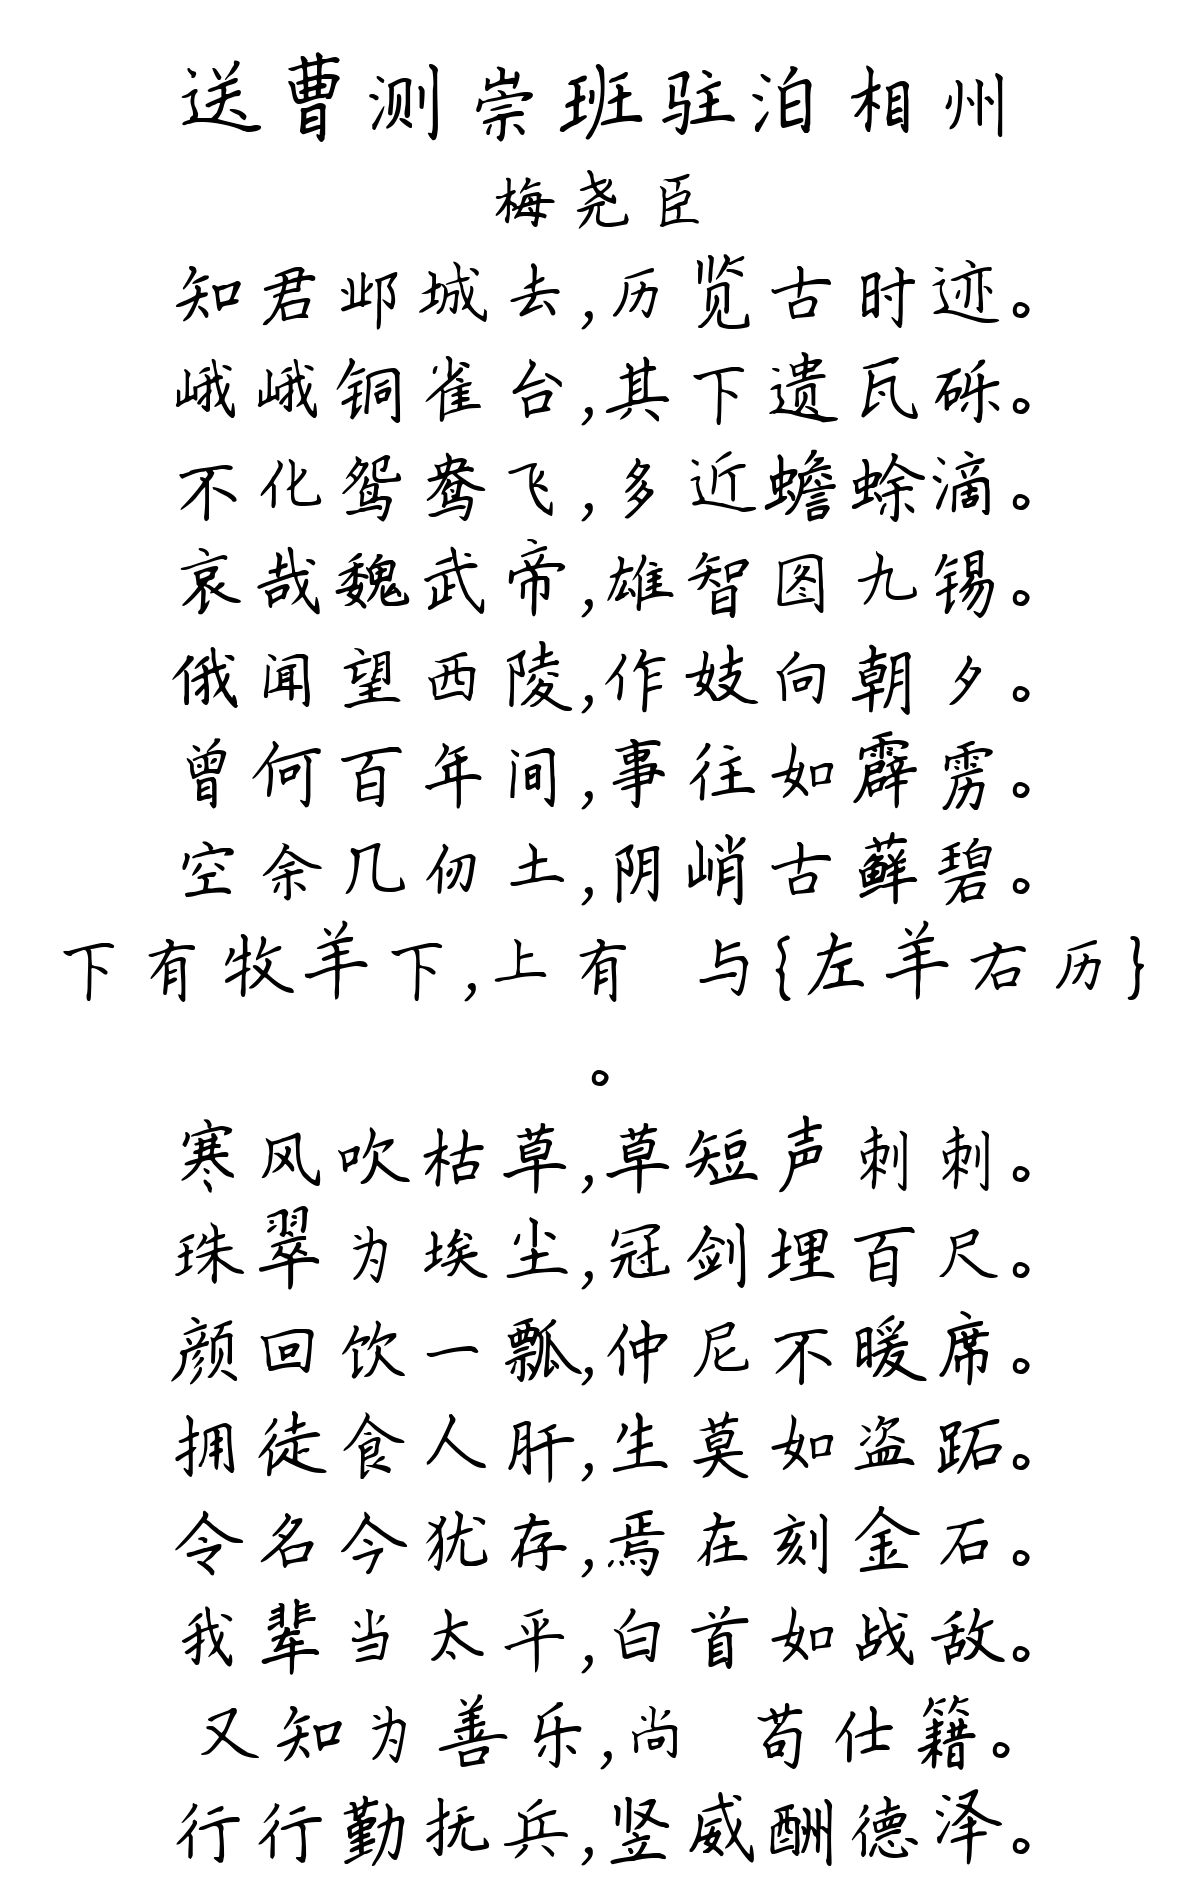 送曹测崇班驻泊相州
梅尧臣
知君邺城去,历览古时迹。
峨峨铜雀台,其下遗瓦砾。
不化鸳鸯飞,多近蟾蜍滴。
哀哉魏武帝,雄智图九锡。
俄闻望西陵,作妓向朝夕。
曾何百年间,事往如霹雳。
空余几仞土,阴峭古藓碧。
下有牧羊下,上有 与{左羊右历}
。
寒风吹枯草,草短声刺刺。
珠翠为埃尘,冠剑埋百尺。
颜回饮一瓢,仲尼不暖席。
拥徒食人肝,生莫如盗跖。
令名今犹存,焉在刻金石。
我辈当太平,白首如战敌。
又知为善乐,尚 苟仕籍。
行行勤抚兵,竖威酬德泽。